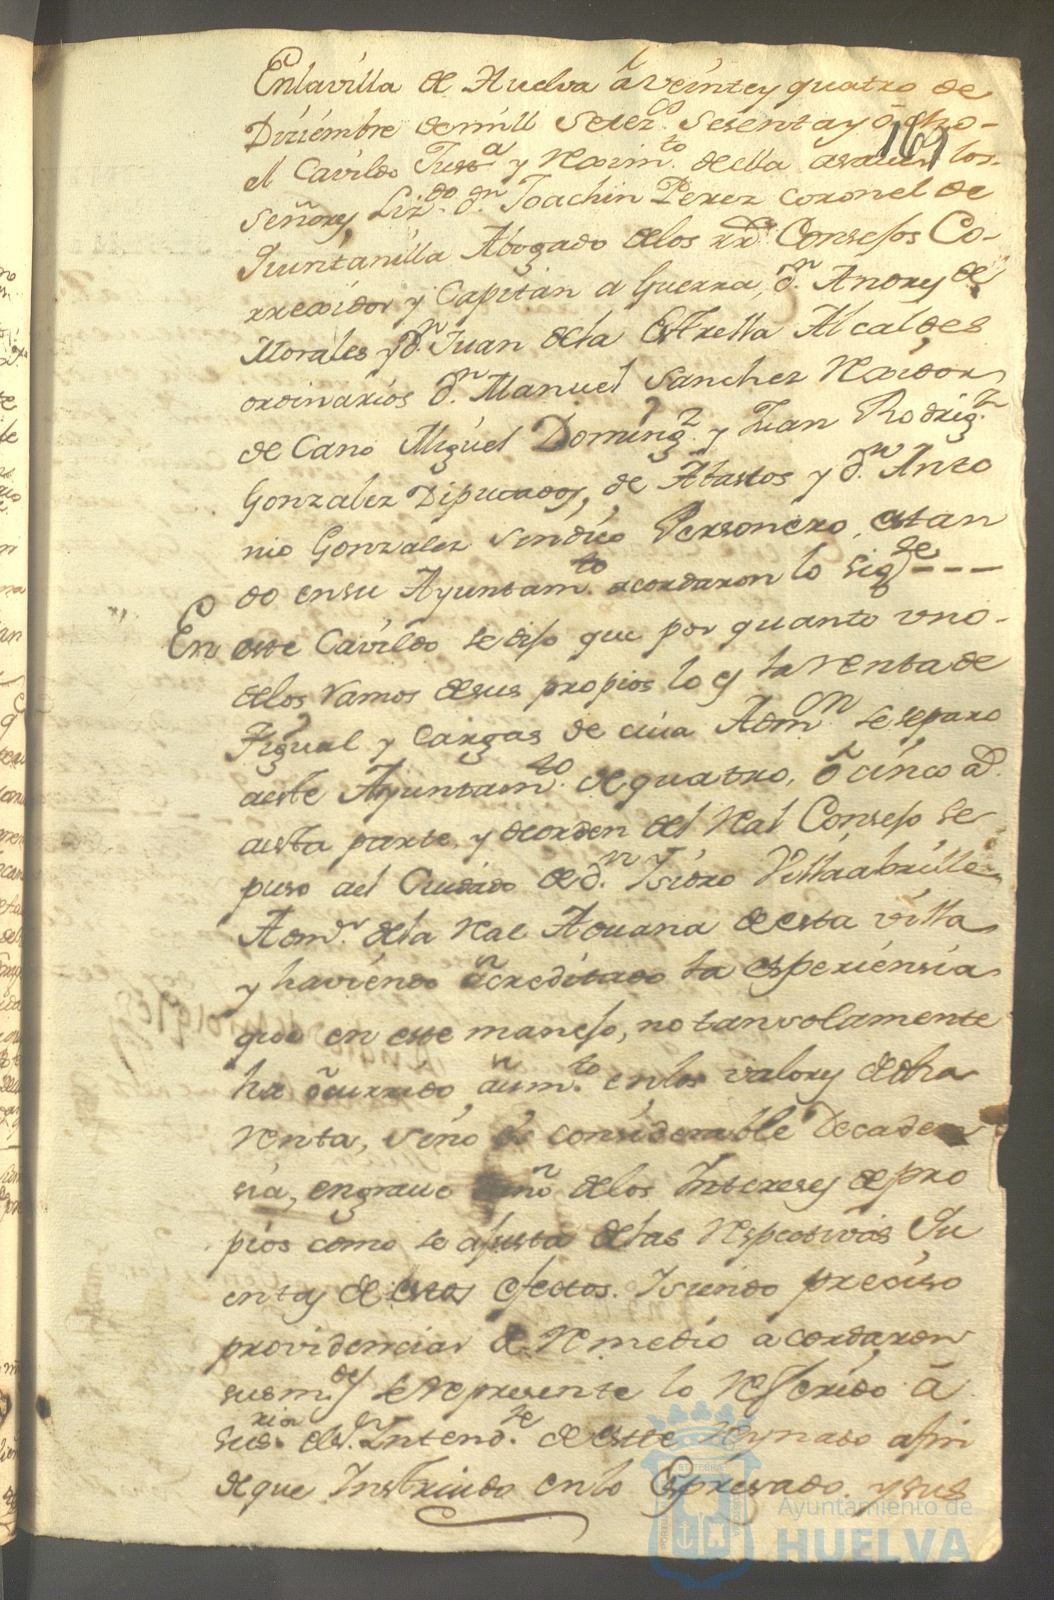 Enlavilla de Huelva â veintey quatro de
Diziembre demill Setez.os Sesentay ôcho-
169
el Cavildo Just.a y Rexim.to della asauer los
Señores, Liz.do d.n Joachin Perez coronel de
Quintanilla Abogado delos rr.s Consejos Co-
rrexidor y Capitan a Guerra, d.n Andres de
Morales y d.n Juan dela Estrella Alcaldes
ordinarios d.n Manuel Sanchez Rexidor
de Cano Miguel Doming.z y Juan Rodrig.z
Gonzalez Diputados, de Abastos y d.n Anto
nio Gonzalez Sindico Personero, estan
do ensu Ayuntam.to acordaron lo sig.te ---
En este Cavildo se dijo que por quanto vno-
delos Ramos desus propios lo es la Renta de
Figual y Cargas de cuia Adm.n se separo
aeste Ayuntam.to de quatro, ô cinco a.s
aesta parte, y deorden del Real Consejo se
puso ael Cuidado de d.n Ysidro Villaabrille
Adm.r dela Real Aduana de esta villa
y haviendo âcreditado la esperiensia
que en este manejo, no tansolamente
ha ôcurrido âum.to enlos valores dedha
Renta, sino de considerable Decaden
sia, engraue daño delos Intereses depro
pios como se ajusta delas Respectivas Qu
entas de estos efectos. Ysiendo preciso
providenciar de Remedio acordaron
susm.des se Represente lo Referido â
sus.ria el s.r Intend.te de este Reynado afin
deque Instruido enlo Espresado. ysus
Ayuntamiento de
HUELVA